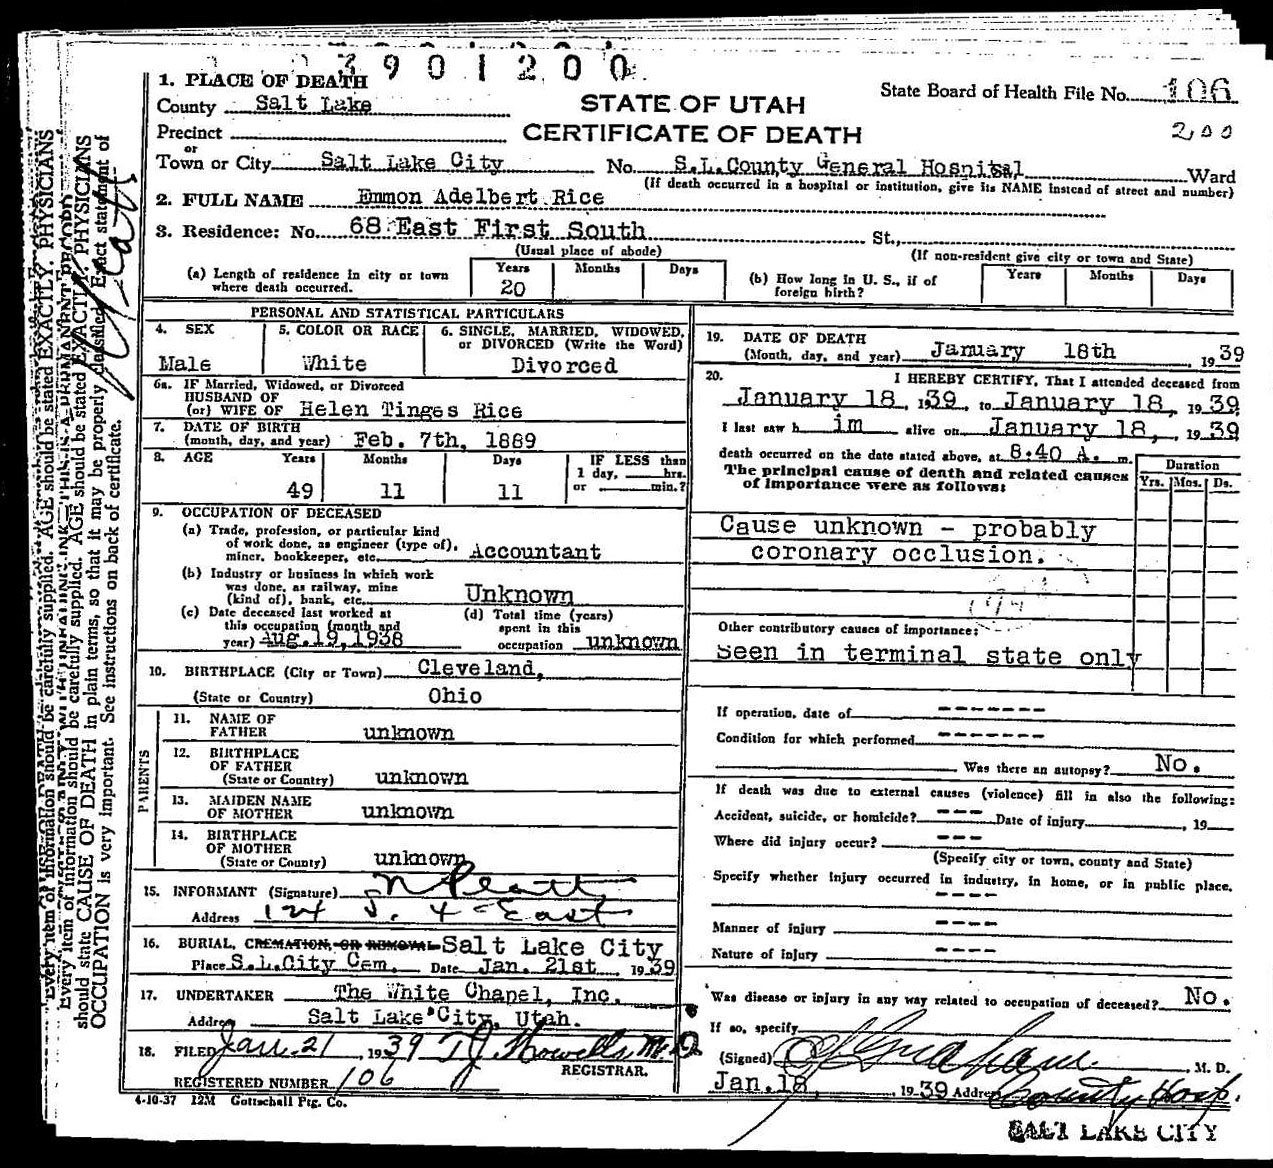 3901200
1. PLACE OF DEATH
County Salt Lake
STATE OF UTAH
State Board of Health File No. 106
Precinct
CERTIFICATE OF DEATH
200
or
Town or City Salt Lake City No. S.L.County General Hospital Ward
(If death occurred in a hospital or institution, give its NAME instead of street and number)
2. FULL NAME Emmon Adelbert Rice
3. Residence: No. 68 East First South St.,
(Usual place of abode) (If non-resident give city or town and State)
(a) Length of residence in city or town where death occurred. Years 20 Months Days
(b) How long in U. S., if of foreign birth? Years Months Days
PERSONAL AND STATISTICAL PARTICULARS
4. SEX Male
5. COLOR OR RACE White
6. SINGLE, MARRIED, WIDOWED, or DIVORCED (Write the Word) Divorced
6a. IF Married, Widowed, or Divorced
HUSBAND OF
(or) WIFE OF Helen Tinges Rice
7. DATE OF BIRTH
(month, day, and year) Feb. 7th, 1889
8. AGE Years 49 Months 11 Days 11
IF LESS than
1 day, hrs.
or min.?
9. OCCUPATION OF DECEASED
(a) Trade, profession, or particular kind
of work done, as engineer (type of),
miner, bookkeeper, etc. Accountant
(b) Industry or business in which work
was done, as railway, mine
(kind of), bank, etc. Unknown
(c) Date deceased last worked at
this occupation (month and
year) Aug.19,1938
(d) Total time (years)
spent in this
occupation unknown
10. BIRTHPLACE (City or Town) Cleveland,
(State or Country) Ohio
PARENTS
11. NAME OF
FATHER unknown
12. BIRTHPLACE
OF FATHER
(State or Country) unknown
13. MAIDEN NAME
OF MOTHER unknown
14. BIRTHPLACE
OF MOTHER
(State or County) unknown
15. INFORMANT (Signature)
Address 124 S. 4 East
16. BURIAL, CREMATION, OR REMOVAL Salt Lake City
Place S.L.City Cem. Date Jan. 21st 1939
17. UNDERTAKER The White Chapel, Inc.
Address Salt Lake City, Utah.
18. FILED Jan. 21, 1939 T J Howells M.D.
REGISTRAR.
REGISTERED NUMBER 106
4-10-37 12M Gottschall Ptg. Co.
19. DATE OF DEATH
(Month, day, and year) January 18th 1939
20. I HEREBY CERTIFY, That I attended deceased from
January 18, 1939, to January 18, 1939
I last saw him alive on January 18, 1939
death occurred on the date stated above, at 8:40 A. m.
The principal cause of death and related causes
of importance were as follows:
Duration
Yrs. Mos. Ds.
Cause unknown - probably
coronary occlusion.
Other contributory causes of importance:
Seen in terminal state only
If operation, date of -------
Condition for which performed -------
Was there an autopsy? No.
If death was due to external causes (violence) fill in also the following:
Accident, suicide, or homicide? --- Date of injury , 19
Where did injury occur? ---
(Specify city or town, county and State)
Specify whether injury occurred in industry, in home, or in public place.
----
Manner of injury ----
Nature of injury ----
Was disease or injury in any way related to occupation of deceased? No.
If so, specify
(Signed) , M. D.
Jan.18, 1939 Address County Hosp.
SALT LAKE CITY
Every item of information should be carefully supplied. AGE should be stated EXACTLY. PHYSICIANS
should state CAUSE OF DEATH in plain terms, so that it may be properly classified. Exact statement of
OCCUPATION is very important. See instructions on back of certificate.